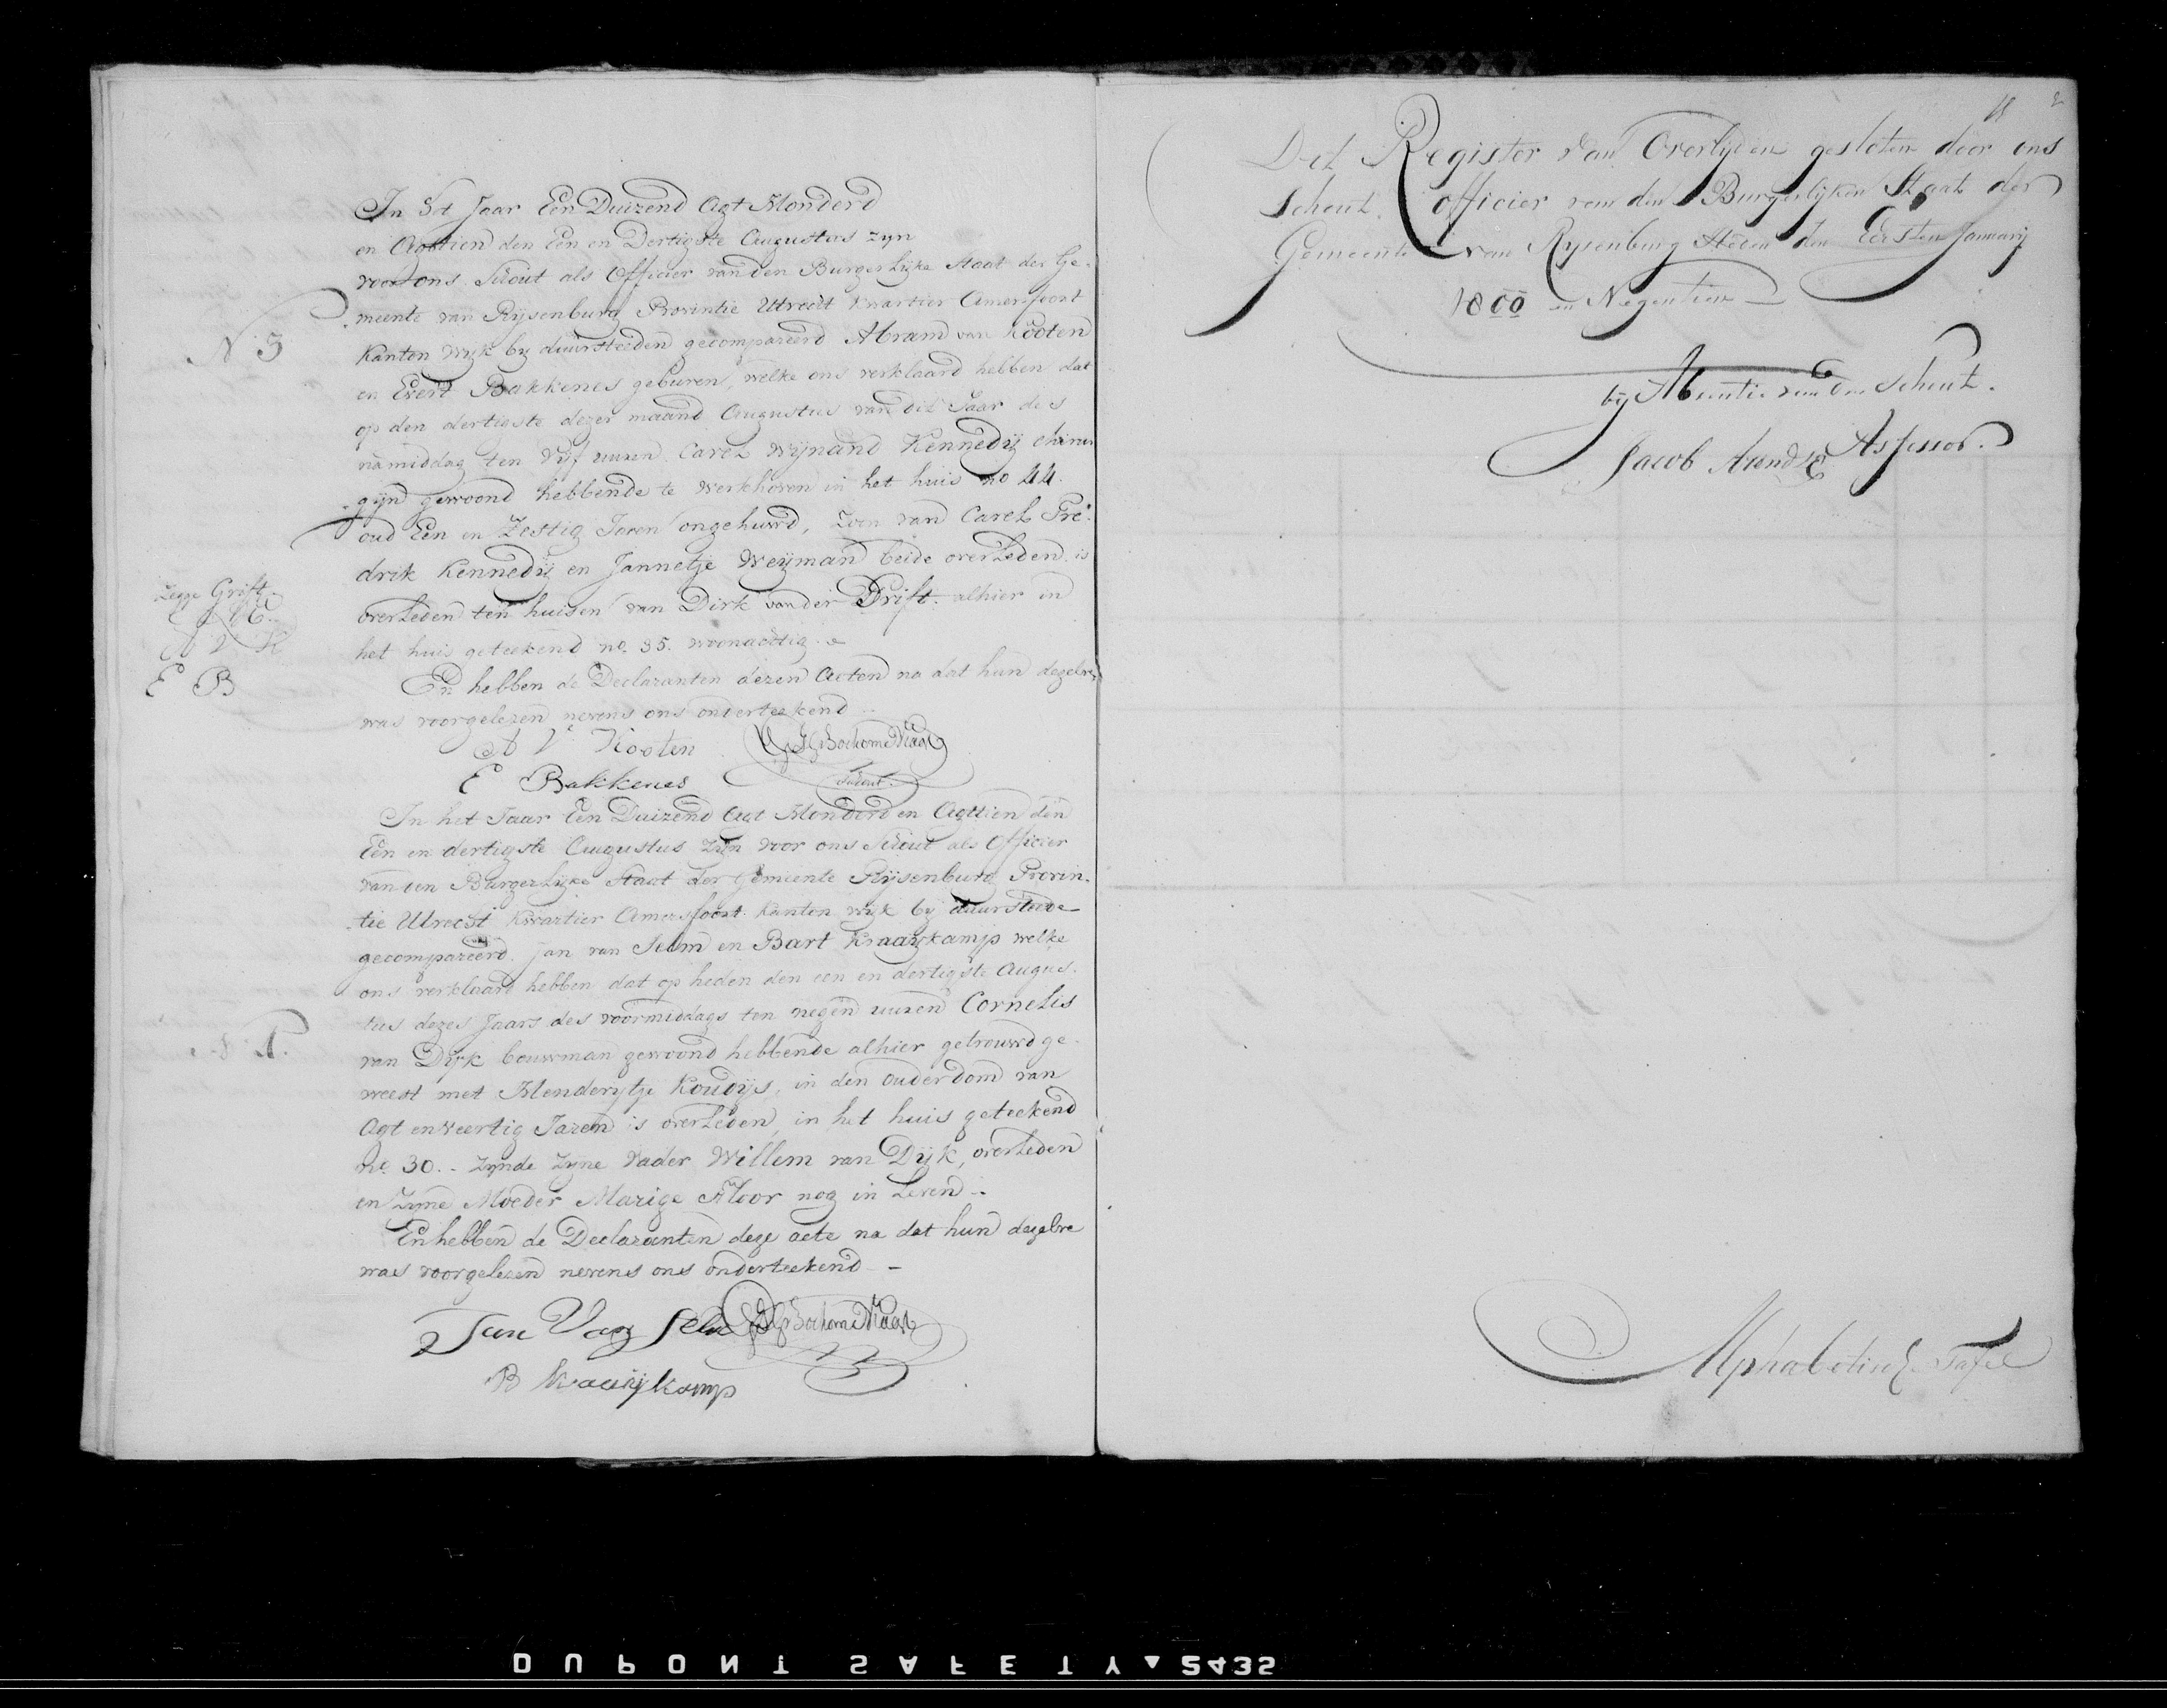 In het Jaar Een Duizend Agt Honderd
en Agttien den Een en Dertigste Augustus zyn
voor ons Schout als Officier van den Burgerlijke Staat der Ge-
meente van Rijsenburg Provintie Utrecht Kwartier Amersfoort
N 3
Kanton Wijk by duursteeden gecompareerd Abram van Kooten
en Evert Bakkenes geburen, welke ons verklaard hebben dat
op den dertigste dezer maand Augustus van dit Jaar des
namiddag ten Vijf uuren Carel Wijnand Kennedij chirur
gijn gewoond hebbende te Werkhoven in het huis no 44.
oud Een en Zestig Jaren ongehuwd, Zoon van Carel Fre-
drik Kennedij en Jannetje Weijman beide overleden is
Zegge Grift
overleden ten huisen van Dirk van der Drift alhier in
A V K
het huis geteekend no. 35. woonachtig
E B
En hebben de Declaranten dezen Acten na dat hun dezelve
was voorgelezen nevens ons onderteekend
A V Kooten
Schout
E Bakkenes
In het Jaar Een Duizend Agt Honderd en Agttien den
Een en dertigste Augustus zijn voor ons Schout als Officier
van den Burgerlijke Staat der Gemeente Rijsenburg Provin-
tie Utrecht Kwartier Amersfoort Kanton Wijk bij duurstede
gecompareerd Jan van Selm en Bart Kraaijkamp welke
ons verklaard hebben dat op heden den een en dertigste Augus-
tus dezes Jaars des voormiddags ten negen uuren Cornelis
van Dijk bouwman gewoond hebbende alhier getrouwd ge-
weest met Henderytje Koudijs, in den ouderdom van
Agt en veertig Jaren is overleden, in het huis geteekend
no. 30. - zynde zyne Vader Willem van Dijk, overleden
en zyne Moeder Marige Floor nog in Leven -
En hebben de Declaranten deze acte na dat hun dezelve
was voorgelezen nevens ons onderteekend -
Jan Van Selm
B Kraaijkamp
Dit Register van Overlyden gesloten door ons
Schout, officier van den Burgerlijken Staat der
Gemeente van Rysenburg Heden den Eersten January
1800 en Negentien
bij Absentie van den Schout.
Jacob Arendse Assessor.
Alphabetisch Tafel
DUPONT SAFETY 2435